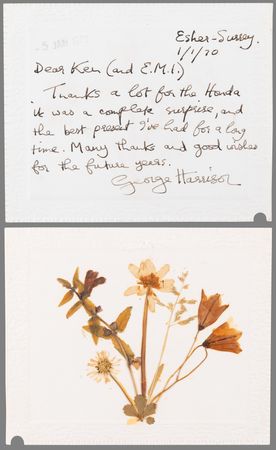 5 JAN
Esher-Surrey.
1/1/70
Dear Ken (and E.M.I.)
Thanks a lot for the Honda
it was a complete surprise, and
the best present I've had for a long
time. Many thanks and good wishes
for the future years.
George Harrison